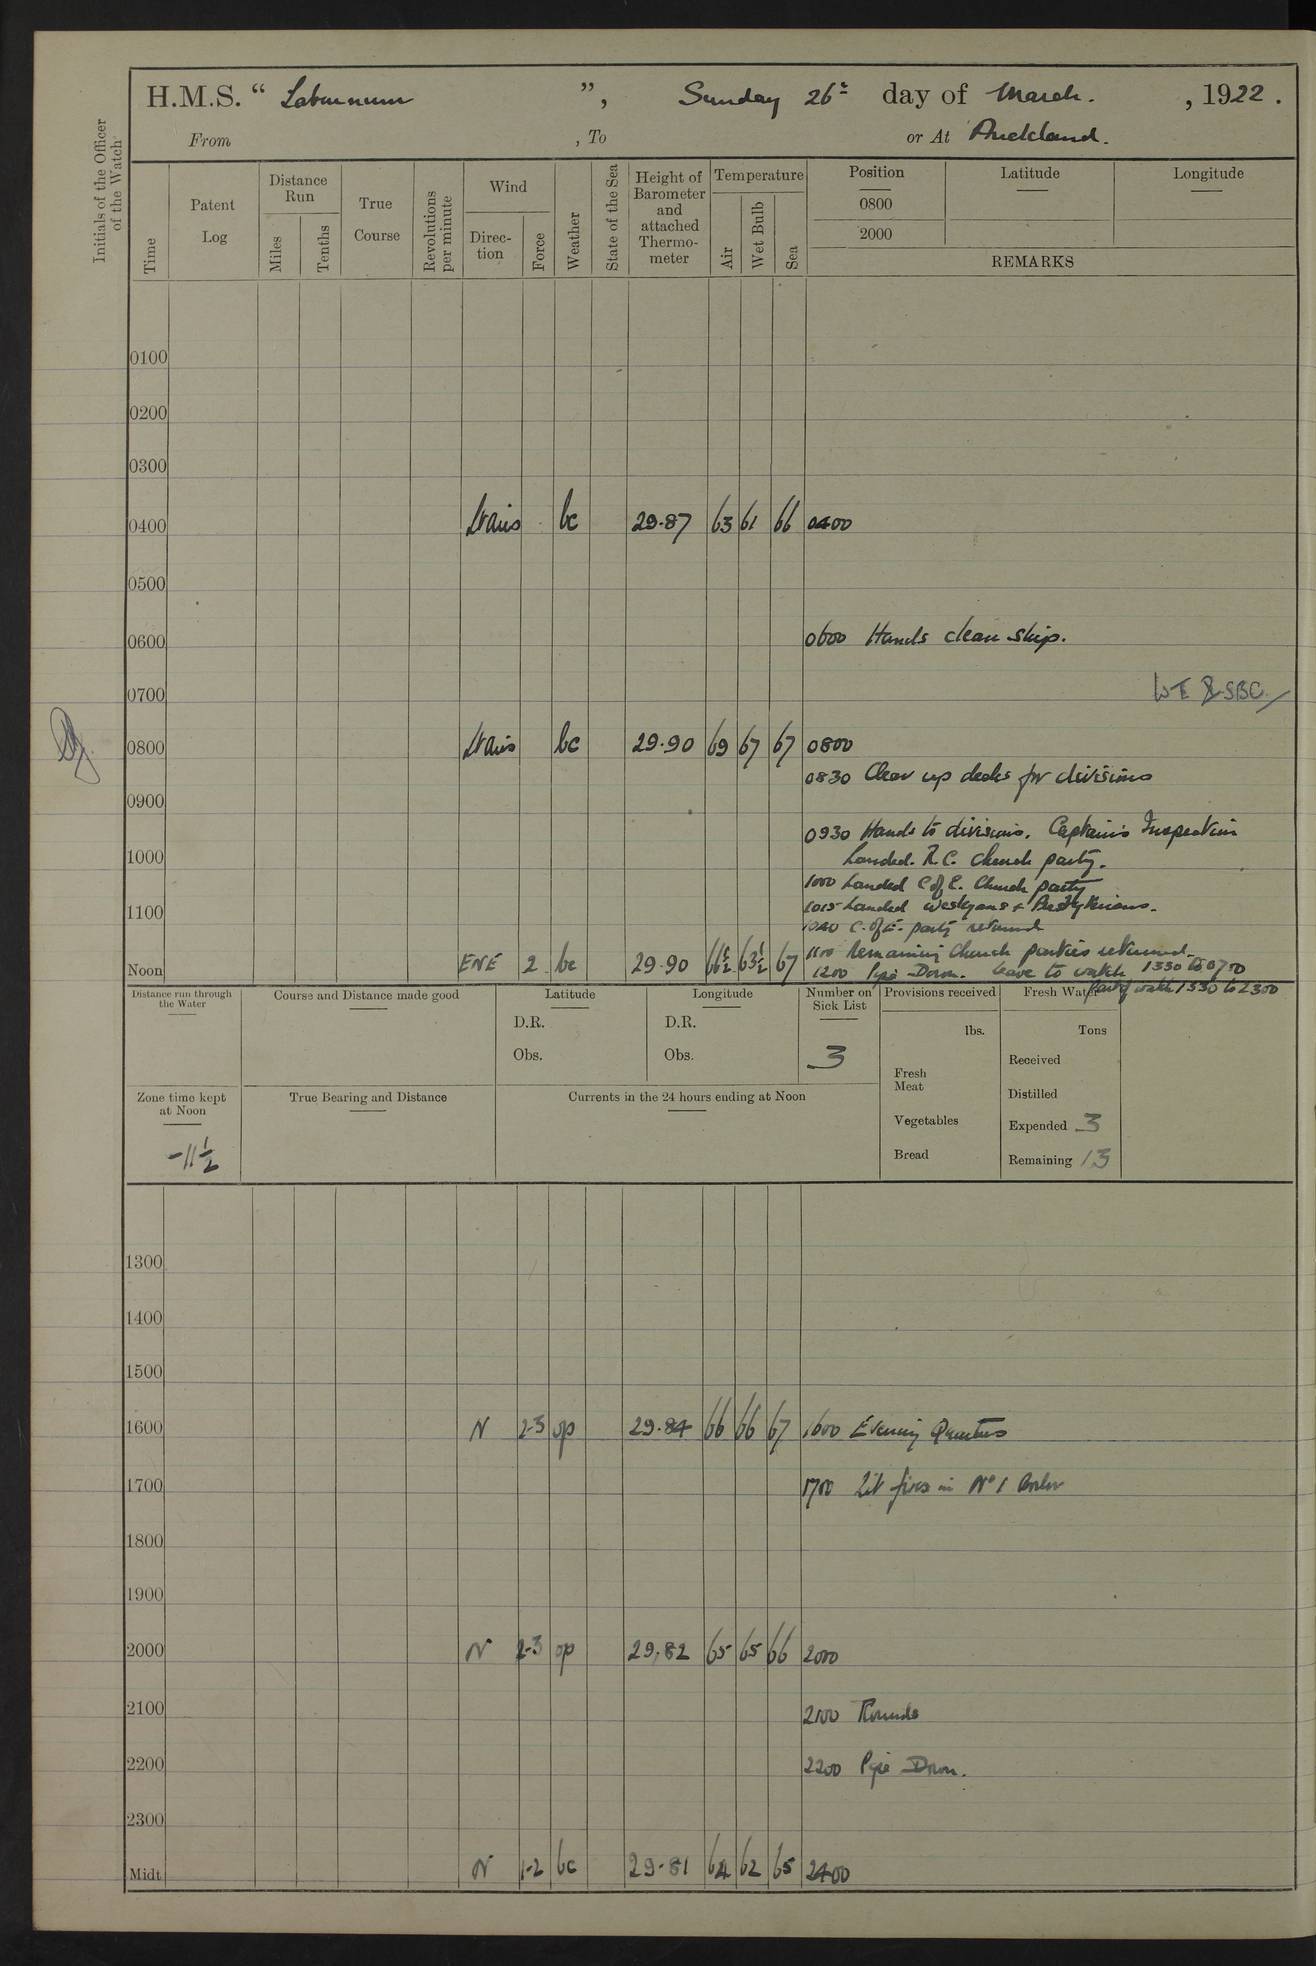 H.M.S. " Laburnum ", Sunday 26th day of March. , 1922.
From , To or At Auckland.
Initials of the Officer of the Watch
Time
Patent Log
Distance Run
Miles
Tenths
True Course
Revolutions per minute
Wind
Direc-tion
Force
Weather
State of the Sea
Height of Barometer and attached Thermo-meter
Temperature
Air
Wet Bulb
Sea
Position
0800
2000
Latitude
Longitude
REMARKS
0100
0200
0300
0400 Lt airs bc 29.87 63 61 66 0400
0500
0600 0600 Hands clean ship.
0700
0800 Lt airs bc 29.90 69 67 67 0800
0830 Clear up decks for divisions
0900
0930 Hands to divisions. Captain's Inspection
1000 Landed R.C. Church party.
1000 Landed C of E. Church party
1015 Landed Wesleyans & Presbyterians.
1100
1040 C. of E. party returned
1100 Remaining Church parties returned.
Noon ENE 2 bc 29.90 66½ 63½ 67 1200 Pipe Down. Leave to watch 1330 to 0700
Part of watch 1330 to 2300
Distance run through the Water
Course and Distance made good
Latitude
D.R.
Obs.
Longitude
D.R.
Obs.
Number on Sick List
3
Provisions received
lbs.
Fresh Meat
Vegetables
Bread
Fresh Water
Tons
Received
Distilled
Expended 3
Remaining 13
Zone time kept at Noon
-11½
True Bearing and Distance
Currents in the 24 hours ending at Noon
1300
1400
1500
1600 N 2-3 op 29.84 66 66 67 1600 Evening Quarters
1700 1700 Lit fires in No 1 Boiler
1800
1900
2000 N 2-3 op 29.82 65 65 66 2000
2100 2100 Rounds
2200 2200 Pipe Down.
2300
Midt. N 1-2 bc 29.81 64 62 65 2400